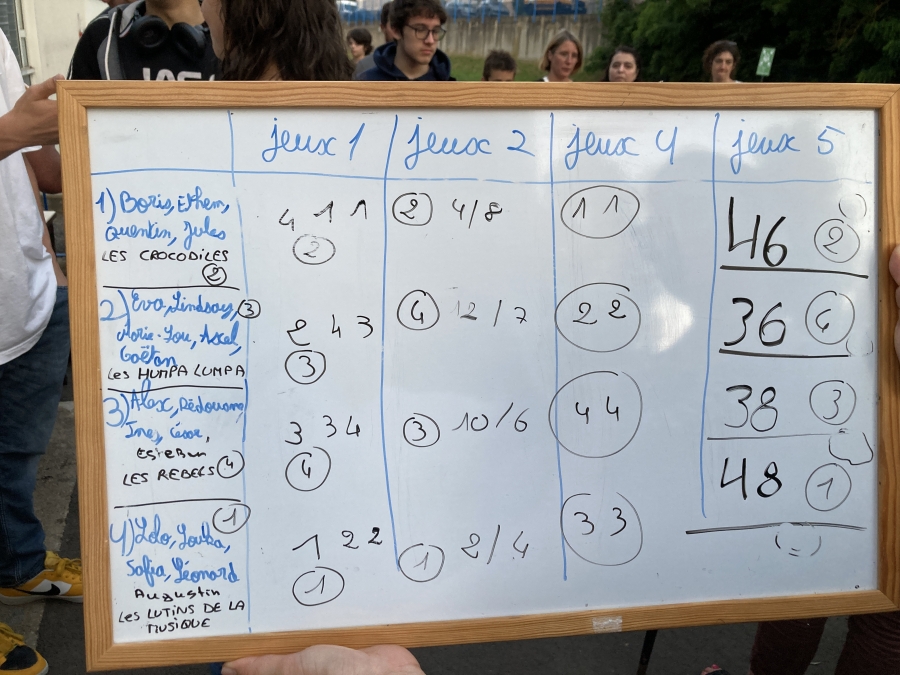 jeux 1 jeux 2 jeux 4 jeux 5
1) Boris, Ethem,
Quentin, Jules
LES CROCODILES
2
4 1 1
2
2 4/8
1 1
46 2
2) Eva, Lindsay, 3
Marie-Lou, Axel,
Gaëtan
Les HUMPA LUMPA
2 4 3
3
4 12/7
2 2
36 4
3) Alex, Rédouane
Inez, César,
Esteban
LES REBELS 4
3 3 4
4
3 10/6
4 4
38 3
1
4) Lolo, Louka,
Sofia, Léonard
Augustin
Les LUTINS DE LA
MUSIQUE
1 2 2
1
1 2/4
3 3
48 1
(=)